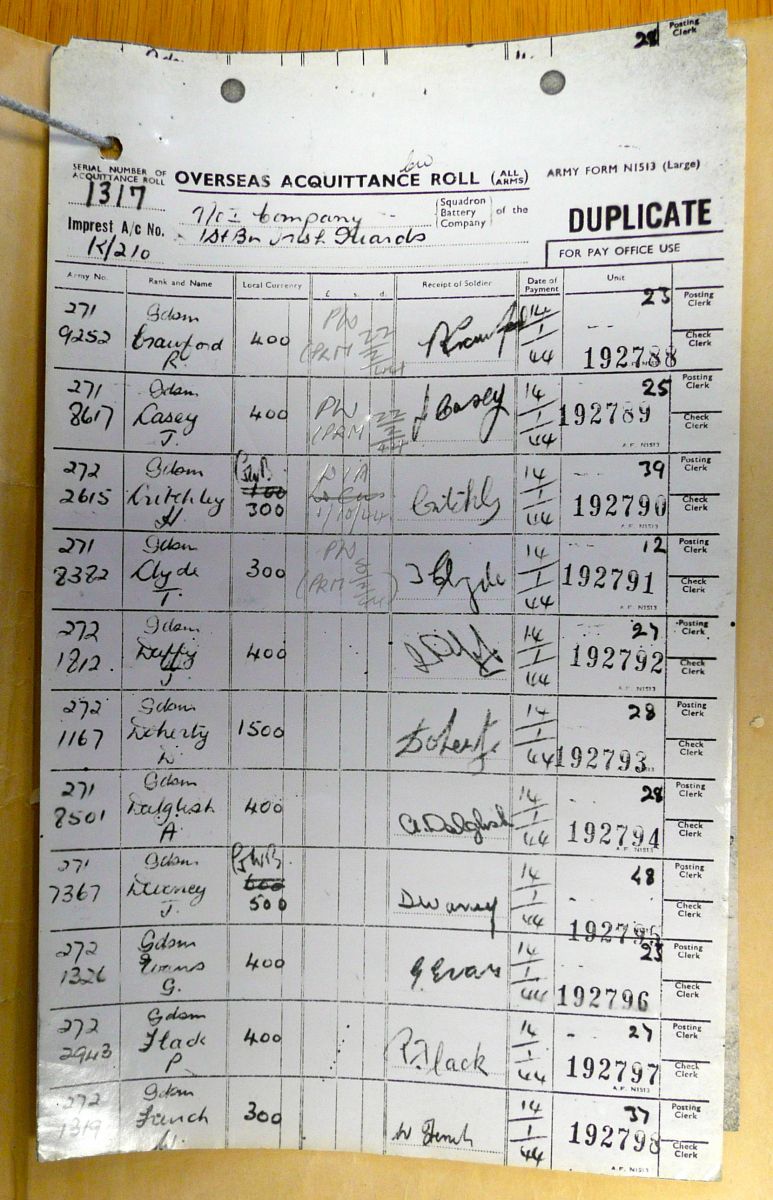 28 Posting Clerk
SERIAL NUMBER OF ACQUITTANCE ROLL
1317
OVERSEAS ACQUITTANCE ROLL (ALL ARMS)
ARMY FORM N1513 (Large)
Imprest A/c No.
K/210
Company
Squadron Battery Company of the
1st Bn Irish Guards
DUPLICATE
FOR PAY OFFICE USE
Army No. Rank and Name Local Currency £ s. d. Receipt of Soldier Date of Payment Unit
271 Gdsm 23 Posting Clerk
9252 Crawford 400 PW 22/2/44 14/1/44 Check Clerk
R. (PRM 192788
271 Gdsm 25 Posting Clerk
8617 Casey 400 PW 22/2/44 J Casey 14/1/44 192789 Check Clerk
J. (PRM A.F. N1513
272 Gdsm 39 Posting Clerk
2615 Critchley 300 Critchly 14/1/44 192790 Check Clerk
H 1/10/44 A.F. N1513
271 Gdsm PW 12 Posting Clerk
8382 Clyde 300 (PRM T Clyde 14/1/44 192791 Check Clerk
T. A.F. N1513
272 Gdsm 27 Posting Clerk
1812 Duffy 400 14/1/44 192792 Check Clerk
J. A.F. N1513
272 Gdsm 28 Posting Clerk
1167 Doherty 1500 Doherty 14/1/44 192793 Check Clerk
271 Gdsm 28 Posting Clerk
8501 Dalglish 400 A Dalglish 14/1/44 192794 Check Clerk
A. A.F. N1513
271 Gdsm 600 48 Posting Clerk
7367 500 14/1/44 192795 Check Clerk
J.
272 Gdsm 23 Posting Clerk
1326 Evans 400 G Evans 14/1/44 192796 Check Clerk
G.
272 Gdsm 27 Posting Clerk
2943 Flack 400 P. Flack 14/1/44 192797 Check Clerk
P A.F. N1513
272 Gdsm 37 Posting Clerk
1319 French 300 W French 14/1/44 192798 Check Clerk
A.F. N1513